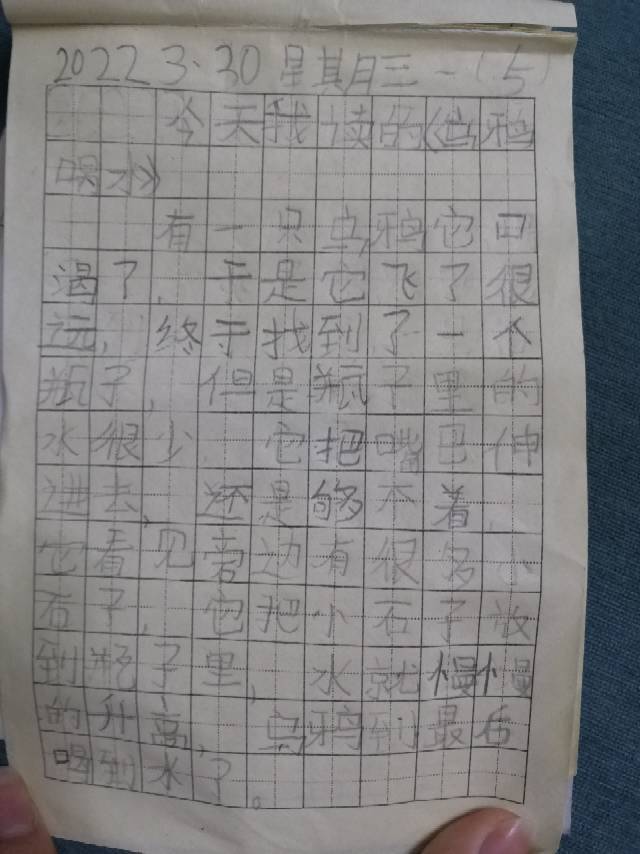 2022 3.30 星期三 - (5)
今天我读的《乌鸦
喝水》
有一只乌鸦它口
渴了,于是它飞了很
远,终于找到了一个
瓶子,但是瓶子里的
水很少 它把嘴巴伸
进去,还是够不着,
它看见旁边有很多小
石子,它把小石子放
到瓶子里,水就慢慢
的升高,乌鸦到最后
喝到水了。